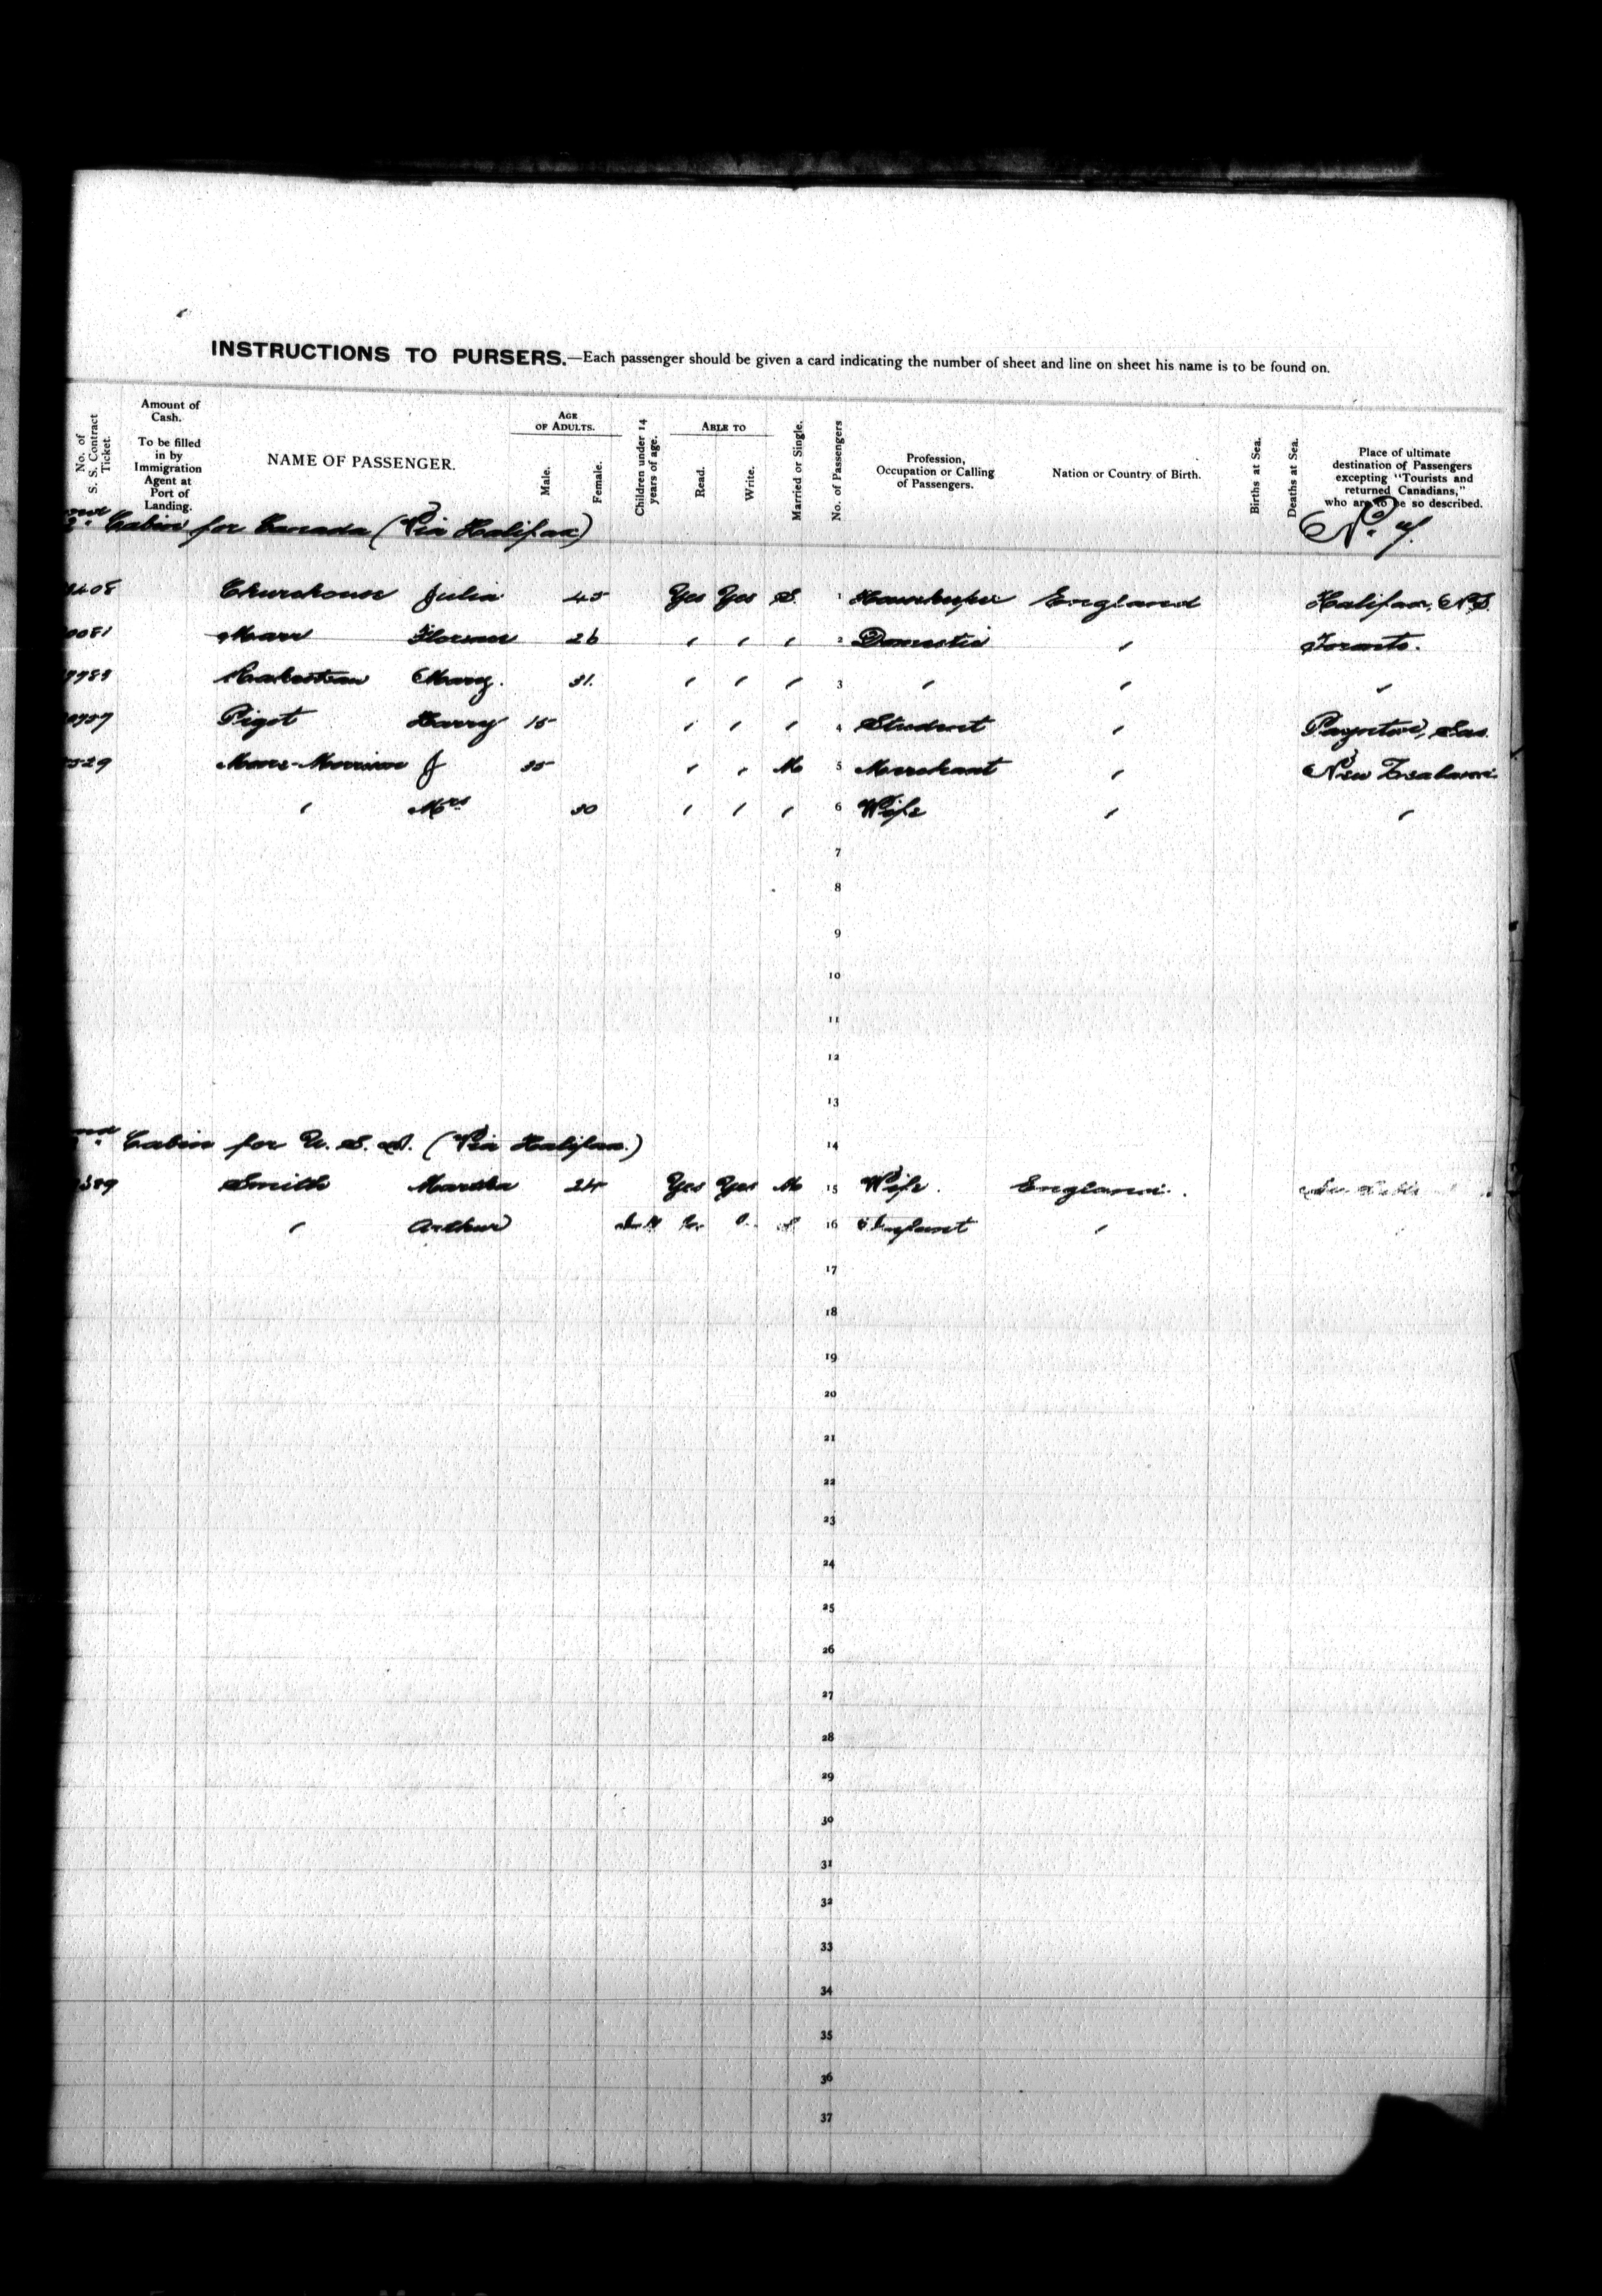 INSTRUCTIONS TO PURSERS.—Each passenger should be given a card indicating the number of sheet and line on sheet his name is to be found on.
No. of S. S. Contract Ticket.
Amount of Cash.
To be filled in by Immigration Agent at Port of Landing.
NAME OF PASSENGER.
AGE OF ADULTS.
Male.
Female.
Children under 14 years of age.
ABLE TO
Read.
Write.
Married or Single.
No. of Passengers
Profession, Occupation or Calling of Passengers.
Nation or Country of Birth.
Births at Sea.
Deaths at Sea.
Place of ultimate destination of Passengers excepting "Tourists and returned Canadians," who are to be so described.
Cabin for Canada (Via Halifax)
Churchouse Julia 45 Yes Yes S. 1 Housekeeper England Halifax, N.S.
Marr Florence 26 " " " 2 Domestic " Toronto.
Mary. 31. " " " 3 " " "
Pigot Harry 15 " " " 4 Student "
Morrison J 35 " " M 5 Merchant " New Zealand
" Mrs 30 " " " 6 Wife " "
7
8
9
10
11
12
13
Cabin for U. S. A. (Via Halifax.) 14
Smith Martha 24 Yes Yes M 15 Wife. England.
" Arthur 16 Infant "
17
18
19
20
21
22
23
24
25
26
27
28
29
30
31
32
33
34
35
36
37